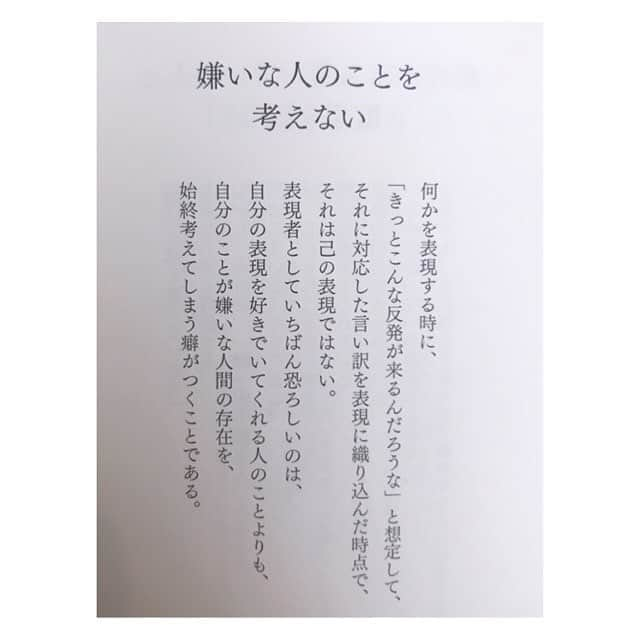 嫌いな人のことを
考えない
何かを表現する時に、
「きっとこんな反発が来るんだろうな」と想定して、
それに対応した言い訳を表現に織り込んだ時点で、
それは己の表現ではない。
表現者としていちばん恐ろしいのは、
自分の表現を好きでいてくれる人のことよりも、
自分のことが嫌いな人間の存在を、
始終考えてしまう癖がつくことである。